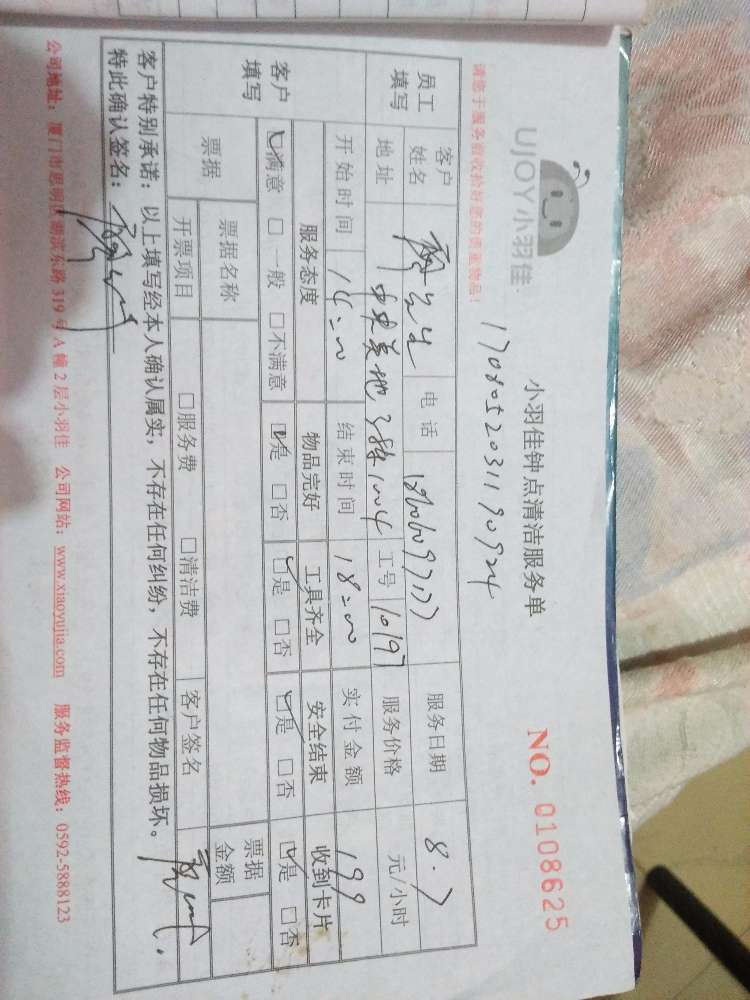 UJOY小羽佳
小羽佳钟点清洁服务单
NO. 0108625
请您于服务前收拾好您的贵重物品!
1708052031190924
员工填写
客户姓名 电话 服务日期 8.7
地址 中央美地 1004 工号 10197 服务价格 元/小时
客户填写
开始时间 14:00 结束时间 18:00 实付金额 199
服务态度 物品完好 工具齐全 安全结束 收到卡片
☑满意 □一般 □不满意 ☑是 □否 ☑是 □否 ☑是 □否 ☑是 □否
票据 票据名称 票据金额
开票项目 □服务费 □清洁费 客户签名
客户特别承诺：以上填写经本人确认属实，不存在任何纠纷，不存在任何物品损坏。
特此确认签名：
公司地址：厦门市思明区湖滨东路 319 号 A 幢 2 层小羽佳 公司网站：www.xiaoyujia.com 服务监督热线：0592-5888123